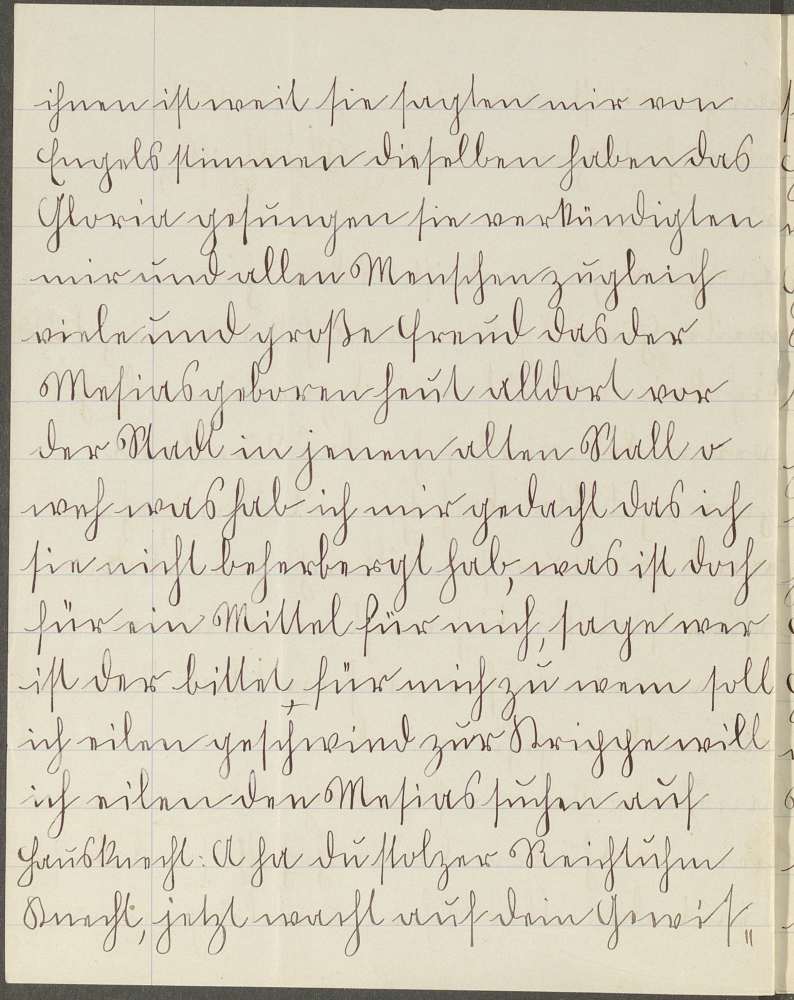 ihnen ist weil sie sagten mir von
Engels stimmen dieselben haben das
Gloria gesungen sie verkündigten
mir und allen Menschen zugleich
viele und große Freud das der
Mesias geboren heut alldort vor
der Stadt in jenem alten Stall o
weh was hab ich mir gedacht das ich
sie nicht beherbergt hab, was ist doch
für ein Mittel für mich, sage wer
ist der bittet für mich zu wem soll
ich eilen geschwind zur Krippe will
ich eilen den Mesias suchen auf
Hausknecht: A ha du stolzer Reichtuhm
Knecht, jetzt wacht auf dein Gewis„